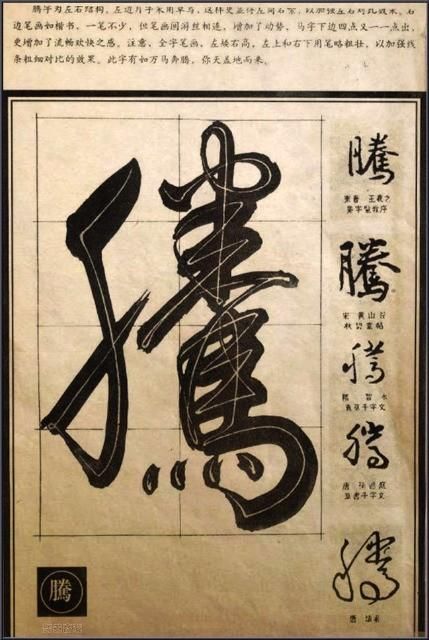 腾字为左右结构。左边月字采用草写，这样更显得左简右繁，以加强左右对比效果。右
边笔画如楷书、一笔不少，但笔画间游丝相连，增加了动势，马字下边四点又一一点出，
更增加了流畅欢快之感。注意、全字笔画，左矮右高，左上和右下用笔略粗壮，以加强线
条粗细对比的效果。此字有如万马奔腾，弥天盖地而来。
騰
騰
東晋 王羲之
聖字聖教序
騰
宋 黄山谷
秋碧堂帖
騰
隋 智永
真草千字文
騰
唐 孫過庭
草書千字文
騰
唐 懷素
騰